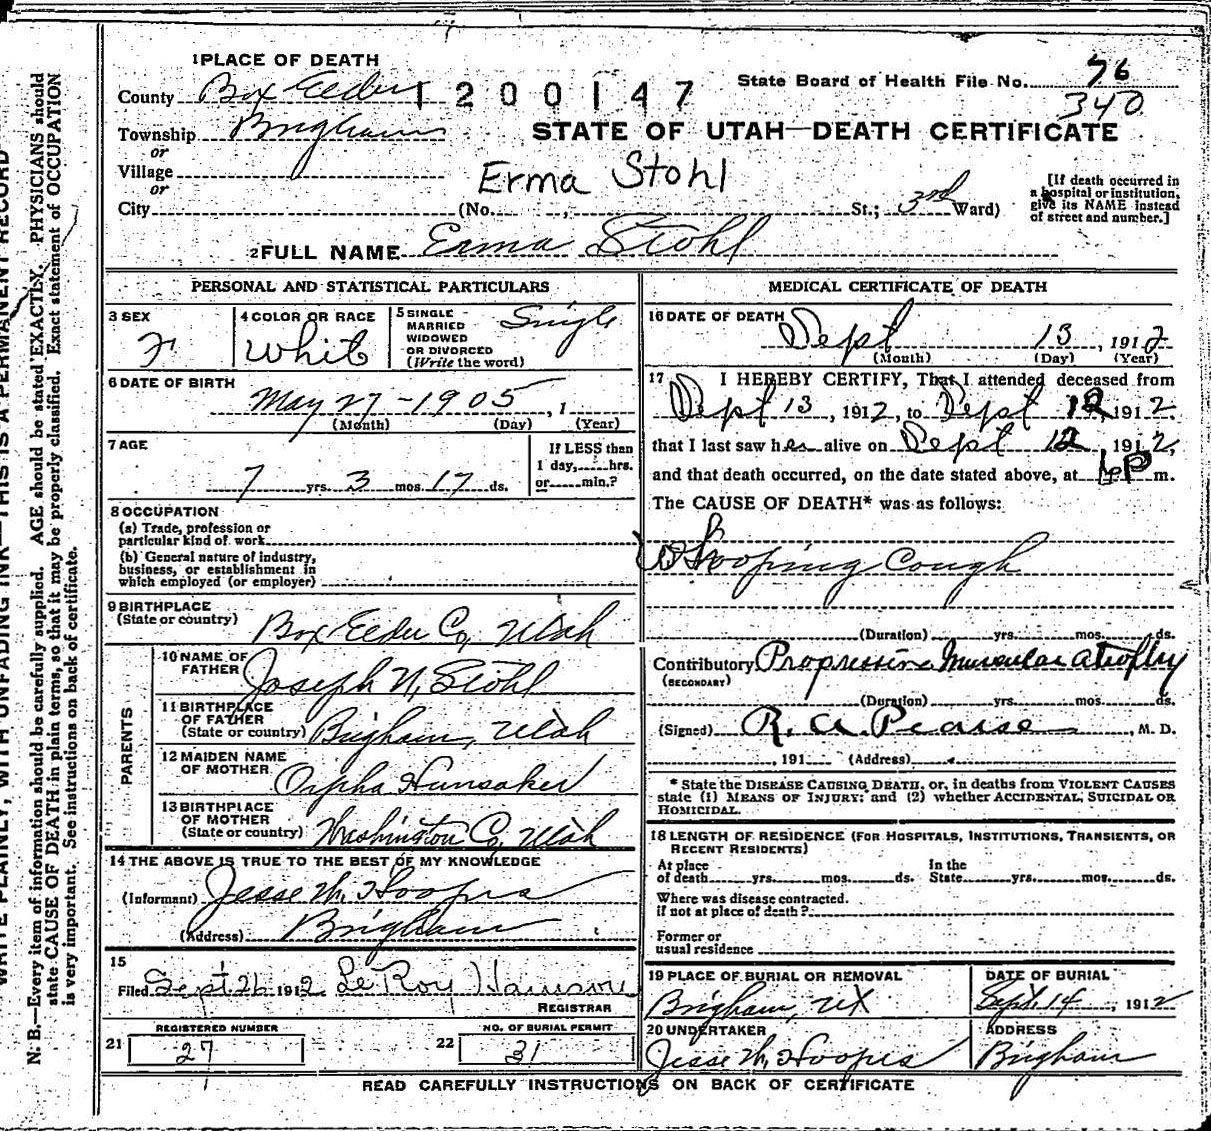 1 PLACE OF DEATH
County Box Elder 1200147
State Board of Health File No. 76
340
Township Brigham
STATE OF UTAH—DEATH CERTIFICATE
or
Village
Erma Stohl
or
City (No. , St.; 3rd Ward)
[If death occurred in a hospital or institution, give its NAME instead of street and number.]
2 FULL NAME Erma Stohl
PERSONAL AND STATISTICAL PARTICULARS
3 SEX F
4 COLOR OR RACE White
5 SINGLE MARRIED WIDOWED OR DIVORCED (Write the word) Single
6 DATE OF BIRTH
May 27-1905, 1
(Month) (Day) (Year)
7 AGE
7 yrs. 3 mos. 17 ds.
If LESS than 1 day, hrs. or min.?
8 OCCUPATION
(a) Trade, profession or
particular kind of work
(b) General nature of industry,
business, or establishment in
which employed (or employer)
9 BIRTHPLACE
(State or country) Box Elder Co, Utah
PARENTS
10 NAME OF
FATHER Joseph N. Stohl
11 BIRTHPLACE
OF FATHER
(State or country) Brigham, Utah
12 MAIDEN NAME
OF MOTHER Orpha Hunsaker
13 BIRTHPLACE
OF MOTHER
(State or country) Washington Co, Utah
14 THE ABOVE IS TRUE TO THE BEST OF MY KNOWLEDGE
(Informant) Jesse W. Hoopes
(Address) Brigham
15
Filed Sept 26 1912 LeRoy
REGISTRAR
REGISTERED NUMBER
21 27
NO. OF BURIAL PERMIT
22 31
MEDICAL CERTIFICATE OF DEATH
16 DATE OF DEATH
Sept 13, 1912
(Month) (Day) (Year)
17 I HEREBY CERTIFY, That I attended deceased from
Sept 13, 1912, to Sept 12 1912
that I last saw her alive on Sept 12, 1912,
and that death occurred, on the date stated above, at m.
The CAUSE OF DEATH* was as follows:
Whooping Cough
(Duration) yrs. mos. ds.
Contributory Progressive Muscular atrophy
(SECONDARY)
(Duration) yrs. mos. ds.
(Signed) R. A. Pearse, M. D.
, 191 (Address)
* State the DISEASE CAUSING DEATH, or, in deaths from VIOLENT CAUSES
state (1) MEANS OF INJURY: and (2) whether ACCIDENTAL, SUICIDAL OR
HOMICIDAL.
18 LENGTH OF RESIDENCE (FOR HOSPITALS, INSTITUTIONS, TRANSIENTS, OR
RECENT RESIDENTS)
At place
of death yrs. mos. ds.
In the
State yrs. mos. ds.
Where was disease contracted.
if not at place of death?
Former or
usual residence
19 PLACE OF BURIAL OR REMOVAL
Brigham, UT
DATE OF BURIAL
Sept. 14, 1912
20 UNDERTAKER
Jesse W. Hoopes
ADDRESS
Brigham
READ CAREFULLY INSTRUCTIONS ON BACK OF CERTIFICATE
WRITE PLAINLY, WITH UNFADING INK—THIS IS A PERMANENT RECORD
N. B.—Every item of information should be carefully supplied. AGE should be stated EXACTLY. PHYSICIANS should
state CAUSE OF DEATH in plain terms, so that it may be properly classified. Exact statement of OCCUPATION
is very important. See instructions on back of certificate.